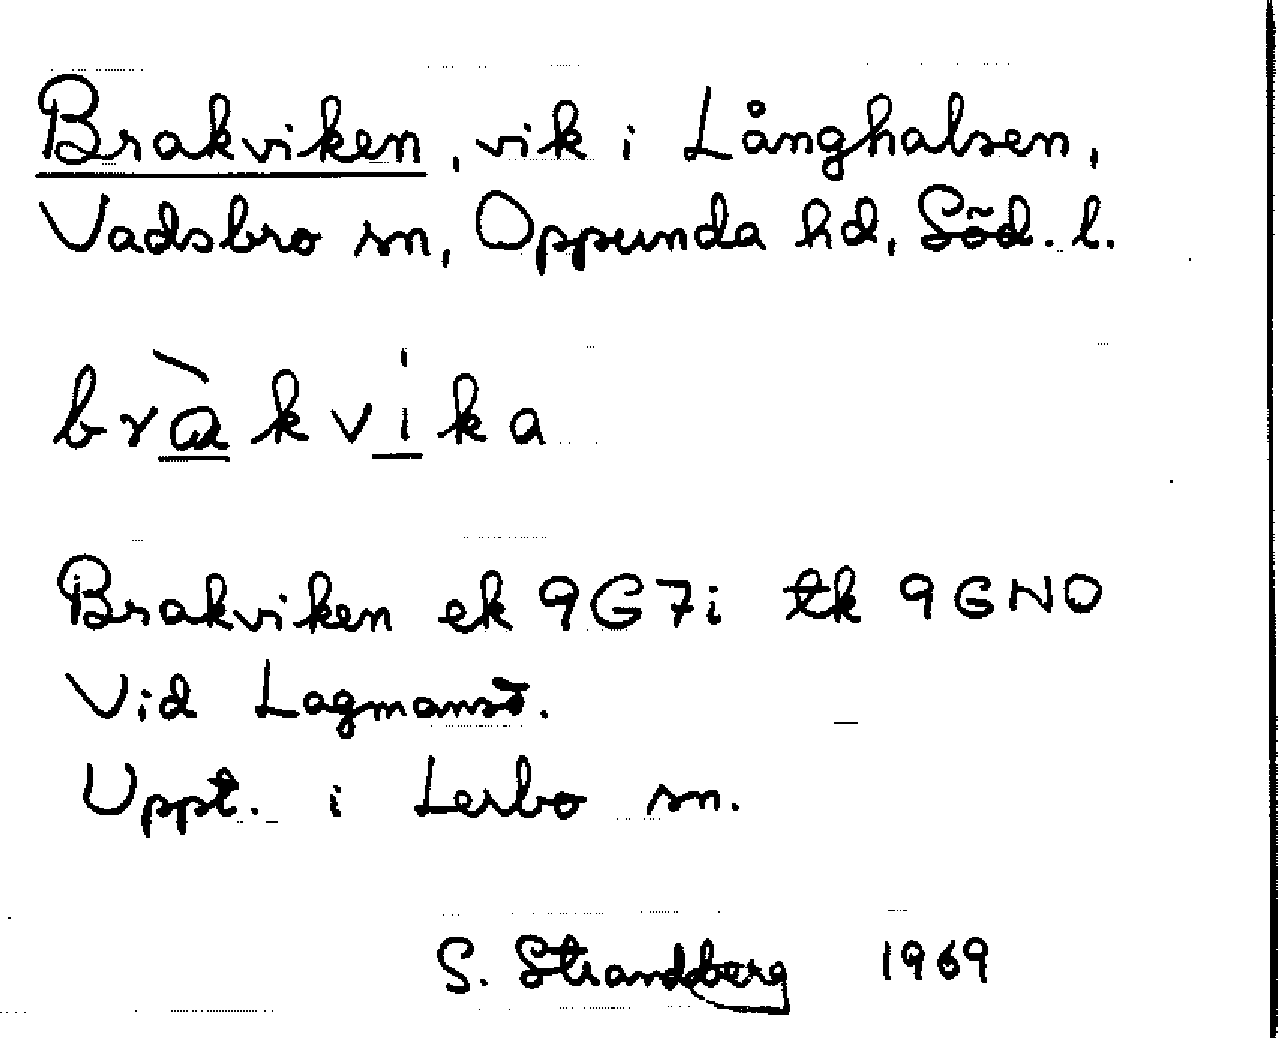 Brakviken, vik i Långhalsen,
Vadsbro sn, Oppunda hd, Söd. l.
bràkvika
Brakviken ek 9G7i tk 9GNO
Vid Lagmansö.
Uppt. i Lerbo sn.
S. Strandberg 1969